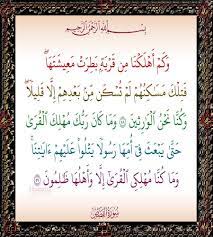 بِسْمِ اللَّهِ الرَّحْمَٰنِ الرَّحِيمِ
وَكَمْ أَهْلَكْنَا مِن قَرْيَةٍ بَطِرَتْ مَعِيشَتَهَا ۖ
فَتِلْكَ مَسَاكِنُهُمْ لَمْ تُسْكَن مِّن بَعْدِهِمْ إِلَّا قَلِيلًا ۖ
وَكُنَّا نَحْنُ الْوَارِثِينَ ۝ وَمَا كَانَ رَبُّكَ مُهْلِكَ الْقُرَىٰ
حَتَّىٰ يَبْعَثَ فِي أُمِّهَا رَسُولًا يَتْلُو عَلَيْهِمْ آيَاتِنَا ۚ
وَمَا كُنَّا مُهْلِكِي الْقُرَىٰ إِلَّا وَأَهْلُهَا ظَالِمُونَ ۝
سُورَةُ القَصَص